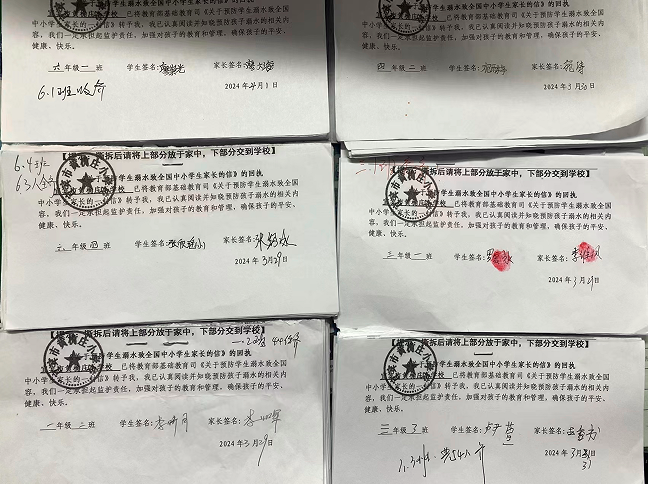 已将教育部基础教育司《关于预防学生溺水致全国
中小学生家长的一封信》转予我，我已认真阅读并知晓预防孩子溺水的相关内
容，我们一定承担起监护责任，加强对孩子的教育和管理，确保孩子的平安、
健康、快乐。
六年级一班 学生签名： 家长签名：
2024年4月1日
6.1班收齐
已将教育部基础教育司《关于预防学生溺水致全国
中小学生家长的一封信》转予我，我已认真阅读并知晓预防孩子溺水的相关
内容，我们一定承担起监护责任，加强对孩子的教育和管理，确保孩子的平安、
健康、快乐。
四年级二班 学生签名： 家长签名：
2024年3月30日
6.4班
63人全齐
撕拆后请将上部分放于家中，下部分交到学校】
学生溺水致全国中小学生家长的信》的回执
已将教育部基础教育司《关于预防学生溺水致全国
中小学生家长的一封信》转予我，我已认真阅读并知晓预防孩子溺水的相关内
容，我们一定承担起监护责任，加强对孩子的教育和管理，确保孩子的平安、
健康、快乐。
六年级四班 学生签名： 家长签名：
2024年3月29日
撕拆后请将上部分放于家中，下部分交到学校】
学生溺水致全国中小学生家长的信》的回执
已将教育部基础教育司《关于预防学生溺水致全国
中小学生家长的一封信》转予我，我已认真阅读并知晓预防孩子溺水的相关内
容，我们一定承担起监护责任，加强对孩子的教育和管理，确保孩子的平安、
健康、快乐。
三年级一班 学生签名： 家长签名：
2024年3月29日
撕拆后请将上部分放于家中，下部分交到学校】
学生溺水致全国中小学生家长的信》的回执
已将教育部基础教育司《关于预防学生溺水致全国
中小学生家长的一封信》转予我，我已认真阅读并知晓预防孩子溺水的相关内
容，我们一定承担起监护责任，加强对孩子的教育和管理，确保孩子的平安、
健康、快乐。
一年级二班 学生签名： 家长签名：
2024年3月29日
撕拆后请将上部分放于家中，下部分交到学校】
学生溺水致全国中小学生家长的信》的回执
已将教育部基础教育司《关于预防学生溺水致全国
中小学生家长的一封信》转予我，我已认真阅读并知晓预防孩子溺水的相关内
容，我们一定承担起监护责任，加强对孩子的教育和管理，确保孩子的平安、
健康、快乐。
三年级3班 学生签名： 家长签名：
2024年3月
31